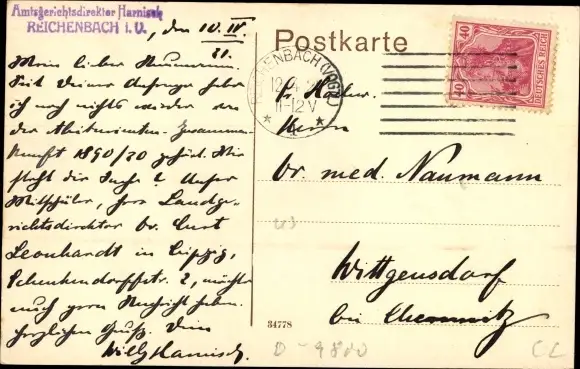 Amtsgerichtsdirektor Harnisch
REICHENBACH i. V.
, den 10. IV.
21.
Mein lieber Naumann.
Seit Deiner Anfrage habe
ich noch nichts wieder von
der Abiturienten-Zusammen-
kunft 1890/20 gehört. Wie
steht die Sache? Unser
Mitschüler, Herr Landge-
richtsdirektor Dr. Curt
Leonhardt in Leipzig,
Schenkendorffstr. 2, möchte
auch gern Nachricht haben.
Herzlichen Gruß. Dein
Willy Harnisch.
Postkarte
REICHENBACH (VOGTL)
11-12V
40
40
DEUTSCHES REICH
Herrn
Dr. med. Naumann
Wittgensdorf
bei Chemnitz
34778
D-9800